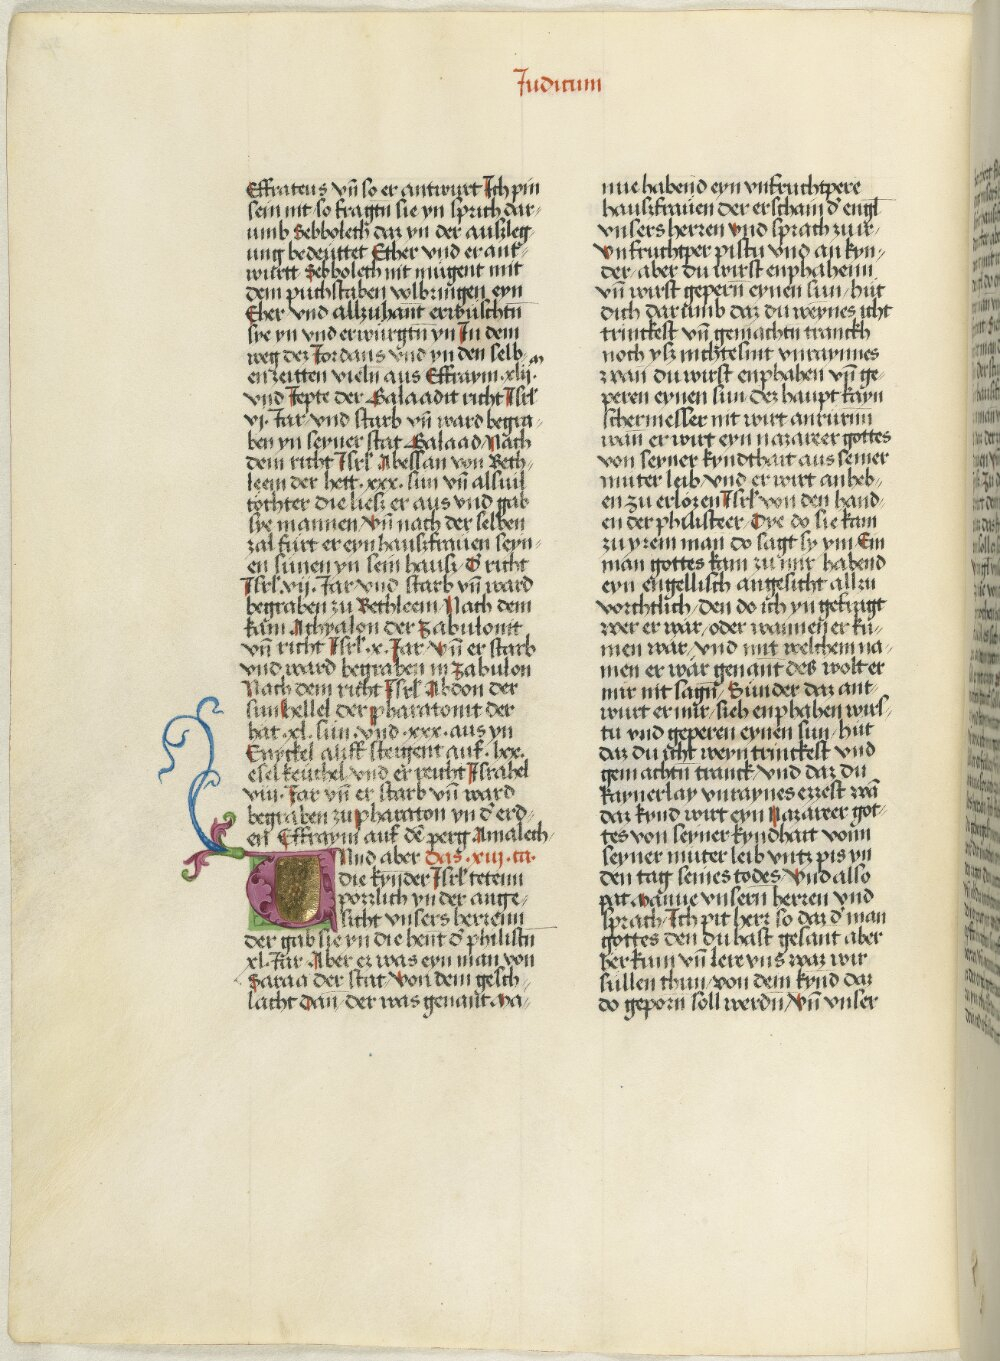 Judicum
Effrateus vn̄ so er antwurt Ich pin
sein nit so fragtn̄ sie yn sprich dar⸗
umb Sebboleth daz yn der außleg⸗
ung bedeüttet Eher und er ant⸗
wurtt Sebboleth nit mugent mit
dem puchstaben volbringen eyn
Eher vnd allzuhant erwüschtn̄
sye yn vnd erwürgtn̄ yn In dem
weg dez Jordans vnd yn den selb⸗
en zeitten vieln aus Effraym .xlii.m
vnd Jepte der Galaadit richt Jsrl̄
vi. Jar vnd starb vn̄ ward begra⸗
ben yn seyner stat Galaad Nach
dem richt Jsrl̄ Abessan von Beth⸗
leem der hett .xxx. sun vn̄ alsuil
töchter die liesz er aus vnd gab
sye mannen Vn̄ nach der selben
zal fürt er eyn hauszfrauen seyn⸗
en sünen yn sein hausz Er richt
Jsrl̄ .vii. Jar vnd starb vn̄ ward
begraben zu Bethleem Nach dem
kam Athyalon der Zabulonit
vn̄ richt Jsrl̄ .x. Jar Vn̄ er starb
vnd ward begraben in Zabulon
Nach dem richt Jsrl̄ Abdon der
sun hellel der pharatonit der
hat .xl. sün vnd .xxx. aus yn
Enyckel auff steigent auf .lxx.
esel keüchel vnd er reicht Jsrahel
viii. Jar vn̄ er starb vn̄ ward
begraben zu pharaton yn d' erd⸗
en Effraym auf dē perg Amalech⸗
Und aber das .xiii. ca.
die kynder Jsrl̄ tetenn
pözzlich yn der ange⸗
sicht vnsers herrenn
der gab sie yn die hent d' philistn̄
xl. Jar Aber ez was eyn man von
Saraa der stat von dem gesch⸗
lächt Dan der was genant Ma⸗
nue habend eyn vnfruchtpere
hauszfrauen der erschain d' engl
vnsers herren Vnd sprach zu ir⸗
Vnfruchtper pistu vnd an kyn⸗
der aber du wirst enphahenn
vn̄ wirst gepern̄ eynen sun hüt
dich dar umb daz du weynes icht
trinckest vn̄ gemachtn tranckh
noch ysz nichtesint vnraynnes
zwan du wirst enphahen vn̄ ge⸗
peren eynen sun dez haupt kayn
schermesser nit wirt anrürnn
wan̄ er wirt eyn nazareer gottes
von seyner kyndthait aus seiner
müter leib vnd er wirt anheb⸗
en zu erlözen Jsrl̄ von den hand⸗
en der philisteer Dye do sie kam
zu yrem man do sagt sy ym Ein
man gottes kam zu mir habend
eyn engellisch angesicht allzu
vorchtlich den do ich yn gefragt
wer er wär oder wannen er ku⸗
men wär vnd mit welchem na⸗
men er wär genant des wolt er
mir nit sagn̄ Sünder daz ant⸗
wurt er mir sieh enphahen wirs⸗
tu vnd geperen eynen sun hüt
daz du icht weyn trinckest vnd
gemachtn̄ tranck vnd daz du
kaynerlay vnraynes ezzest wā
daz kynd wirt eyn Nazareer got⸗
tes von seyner kyndhait vonn
seyner müter leib vntz pis yn
den tag seines todes Vnd also
pat Manue vnsern herren vnd
sprach Ich pit herr so daz d' man
gottes den du hast gesant aber
her kum vn̄ lere vns waz wir
süllen thun von dem kynd daz
do geporn soll werdn̄ Vn̄ vnser